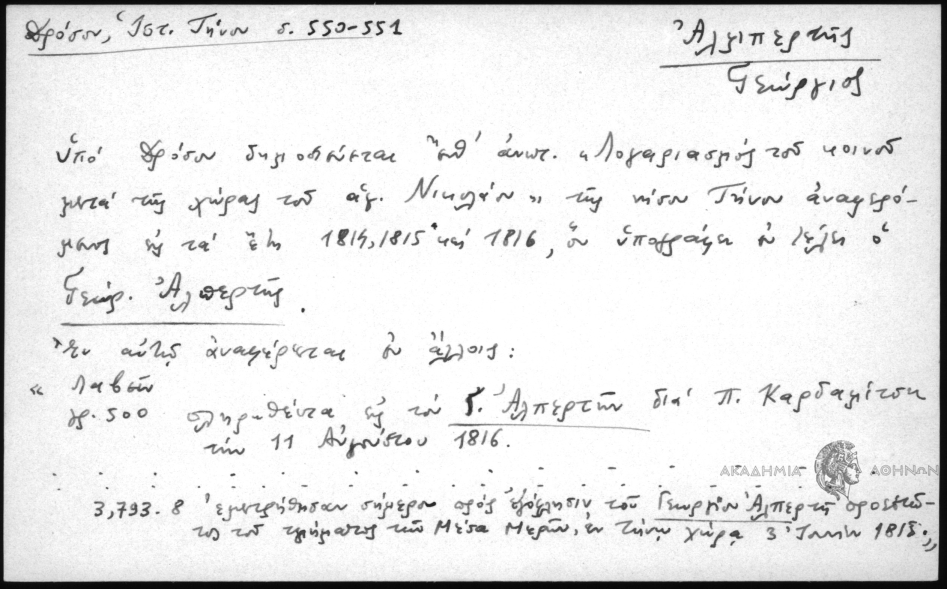 Δρόσου, Ἱστ. Τήνου σ. 550-551
Ἀλιπερτῆς
Γεώργιος
ὑπό Δρόσου δημοσιεύεται ἔνθ' ἀνωτ. "Λογαριασμός τοῦ κοινοῦ
μετά τῆς χώρας τοῦ ἁγ. Νικολάου" τῆς νήσου Τήνου ἀναφερό-
μενος εἰς τά ἔτη 1814, 1815 καί 1816, ὅν ὑπογράφει ἐν τέλει ὁ
Γεώρ. Ἀλπερτῆς.
Ἐν αὐτῷ ἀναφέρεται ἐν ἄλλοις:
"
γρ. 500 πληρωθέντα εἰς τόν Γ. Ἀλπερτῆν διά Π. Καρδαμίτση
τήν 11 Αὐγούστου 1816.
ΑΚΑΔΗΜΙΑ ΑΘΗΝΩΝ
3,793.8 ἐμετρήθησαν σήμερον πρός ἐξόφλησιν τοῦ Γεωργίου Ἀλπερτῆ προεστῶ-
τος τοῦ τμήματος τῶν Μέσα Μερῶν, ἐν Τήνου χώρᾳ 3 1818."